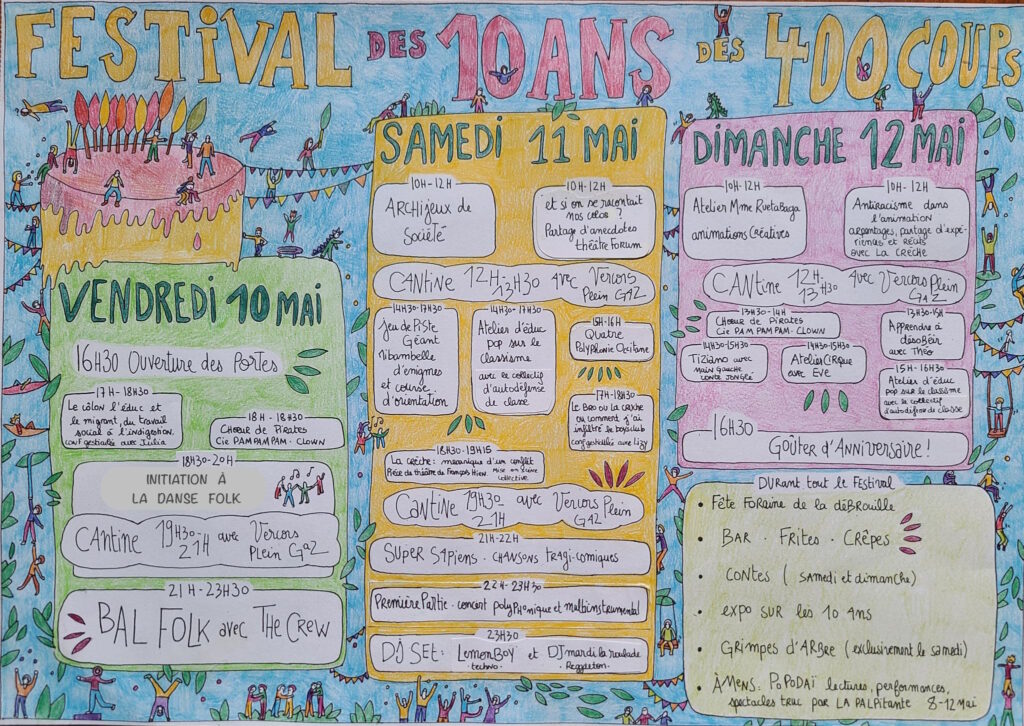 FESTIVAL DES 10 ANS DES 400 COUPS
VENDREDI 10 MAI
16H30 Ouverture des Portes
17H-18H30
Le côlon l'éduc et
le migrant, du travail
social à l'indigestion.
conf gesticulée avec Julia
18H-18H30
Choeur de Pirates
Cie PAM PAM PAM. CLOWN
18H30-20H
INITIATION À
LA DANSE FOLK
Cantine 19H30-21H avec Vercors
Plein Gaz
21H-23H30
BAL FOLK avec THE CREW
SAMEDI 11 MAI
10H-12H
ARCHIjeux de
Société
10H-12H
et si on se racontait
nos colos ?
Partage d'anecdotes
théâtre Forum
CANTINE 12H-13H30 avec Vercors
Plein GAZ
14H30-17H30
jeu de Piste
Géant
Ribambelle
d'énigmes
et course
d'orientation
14H30-17H30
Atelier d'éduc
pop sur le
classisme
avec le collectif
d'autodéfense
de classe
15H-16H
Quatre
Polyphonie Occitane
17H-18H30
Le BRO ou LA CRÈCHE
ou comment j'ai
infiltré le boys club
conf gesticulée avec Lizy
18H30-19H15
LA CRÈCHE: mécanique d'un conflit
Pièce de théâtre de François Hien. Mise en scène
collective.
CANTINE 19H30-21H avec Vercors Plein
GAZ
21H-22H
SUPER SAPIENS. CHANSONS TRAGI-comiques
22H-23H30
PREMIÈRE PARTIE. concert polyphonique et multiinstrumental
23H30
DJ SET: LEMONBOY et DJ mardi la roulade
. techno. . Reggaeton.
DIMANCHE 12 MAI
10H-12H
Atelier Mme Rutabaga
animations Créatives
10H-12H
Antiracisme dans
l'animation
arpentages, partage d'expé-
riences et Récits
avec LA CRÈCHE
CANTINE 12H-13H30 avec Vercors Plein
GAZ
13H30-14H
CHOEUR DE PIRATES
Cie PAM PAM PAM. CLOWN
13H30-15H
Apprendre à
désobéir
avec Théo
14H30-15H30
TIZIANO avec
Main Gauche
CONTE JONGLÉ
14H30-15H30
Atelier CIRQUE
avec EVE
15H-16H30
Atelier d'éduc
pop sur le classisme
avec le collectif
d'autodéfense de classe
16H30
GOÛTER d'ANNIVERSAIRE!
DURANT tout le Festival
• Fête FORAINE de la déBROUILLE
• BAR . FRITES . CRÊPES
• CONTES ( SAMEDI et dimanche)
• EXPO SUR LES 10 ans
• GRIMPES d'ARBRE ( exclusivement le samedi)
• À MENS: POPODAÏ lectures, performances,
spectacles truc par LA PALPITANTE 8-12 Mai